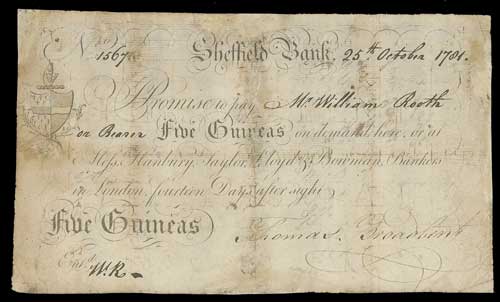 No 1567 Sheffield Bank, 25th October 1781.
I Promise to pay Mr William Booth
or Bearer Five Guineas on demand here, or at
Mess. Hanbury, Taylor, Lloyd & Bowman, Bankers
in London, fourteen Days after sight
Five Guineas Thomas Broadbent
Entd W.R.